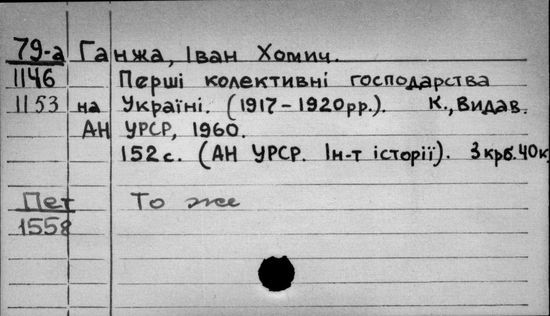 79-а Ганжа, Іван Хомич.
1146 Перші колективні господарства
1153 на Україні. (1917-1920рр.). К., Видав.
АН УРСР, 1960.
152с. (АН УРСР. Ін-т історії). 3 крб. 40 к.
Пет То же
1558